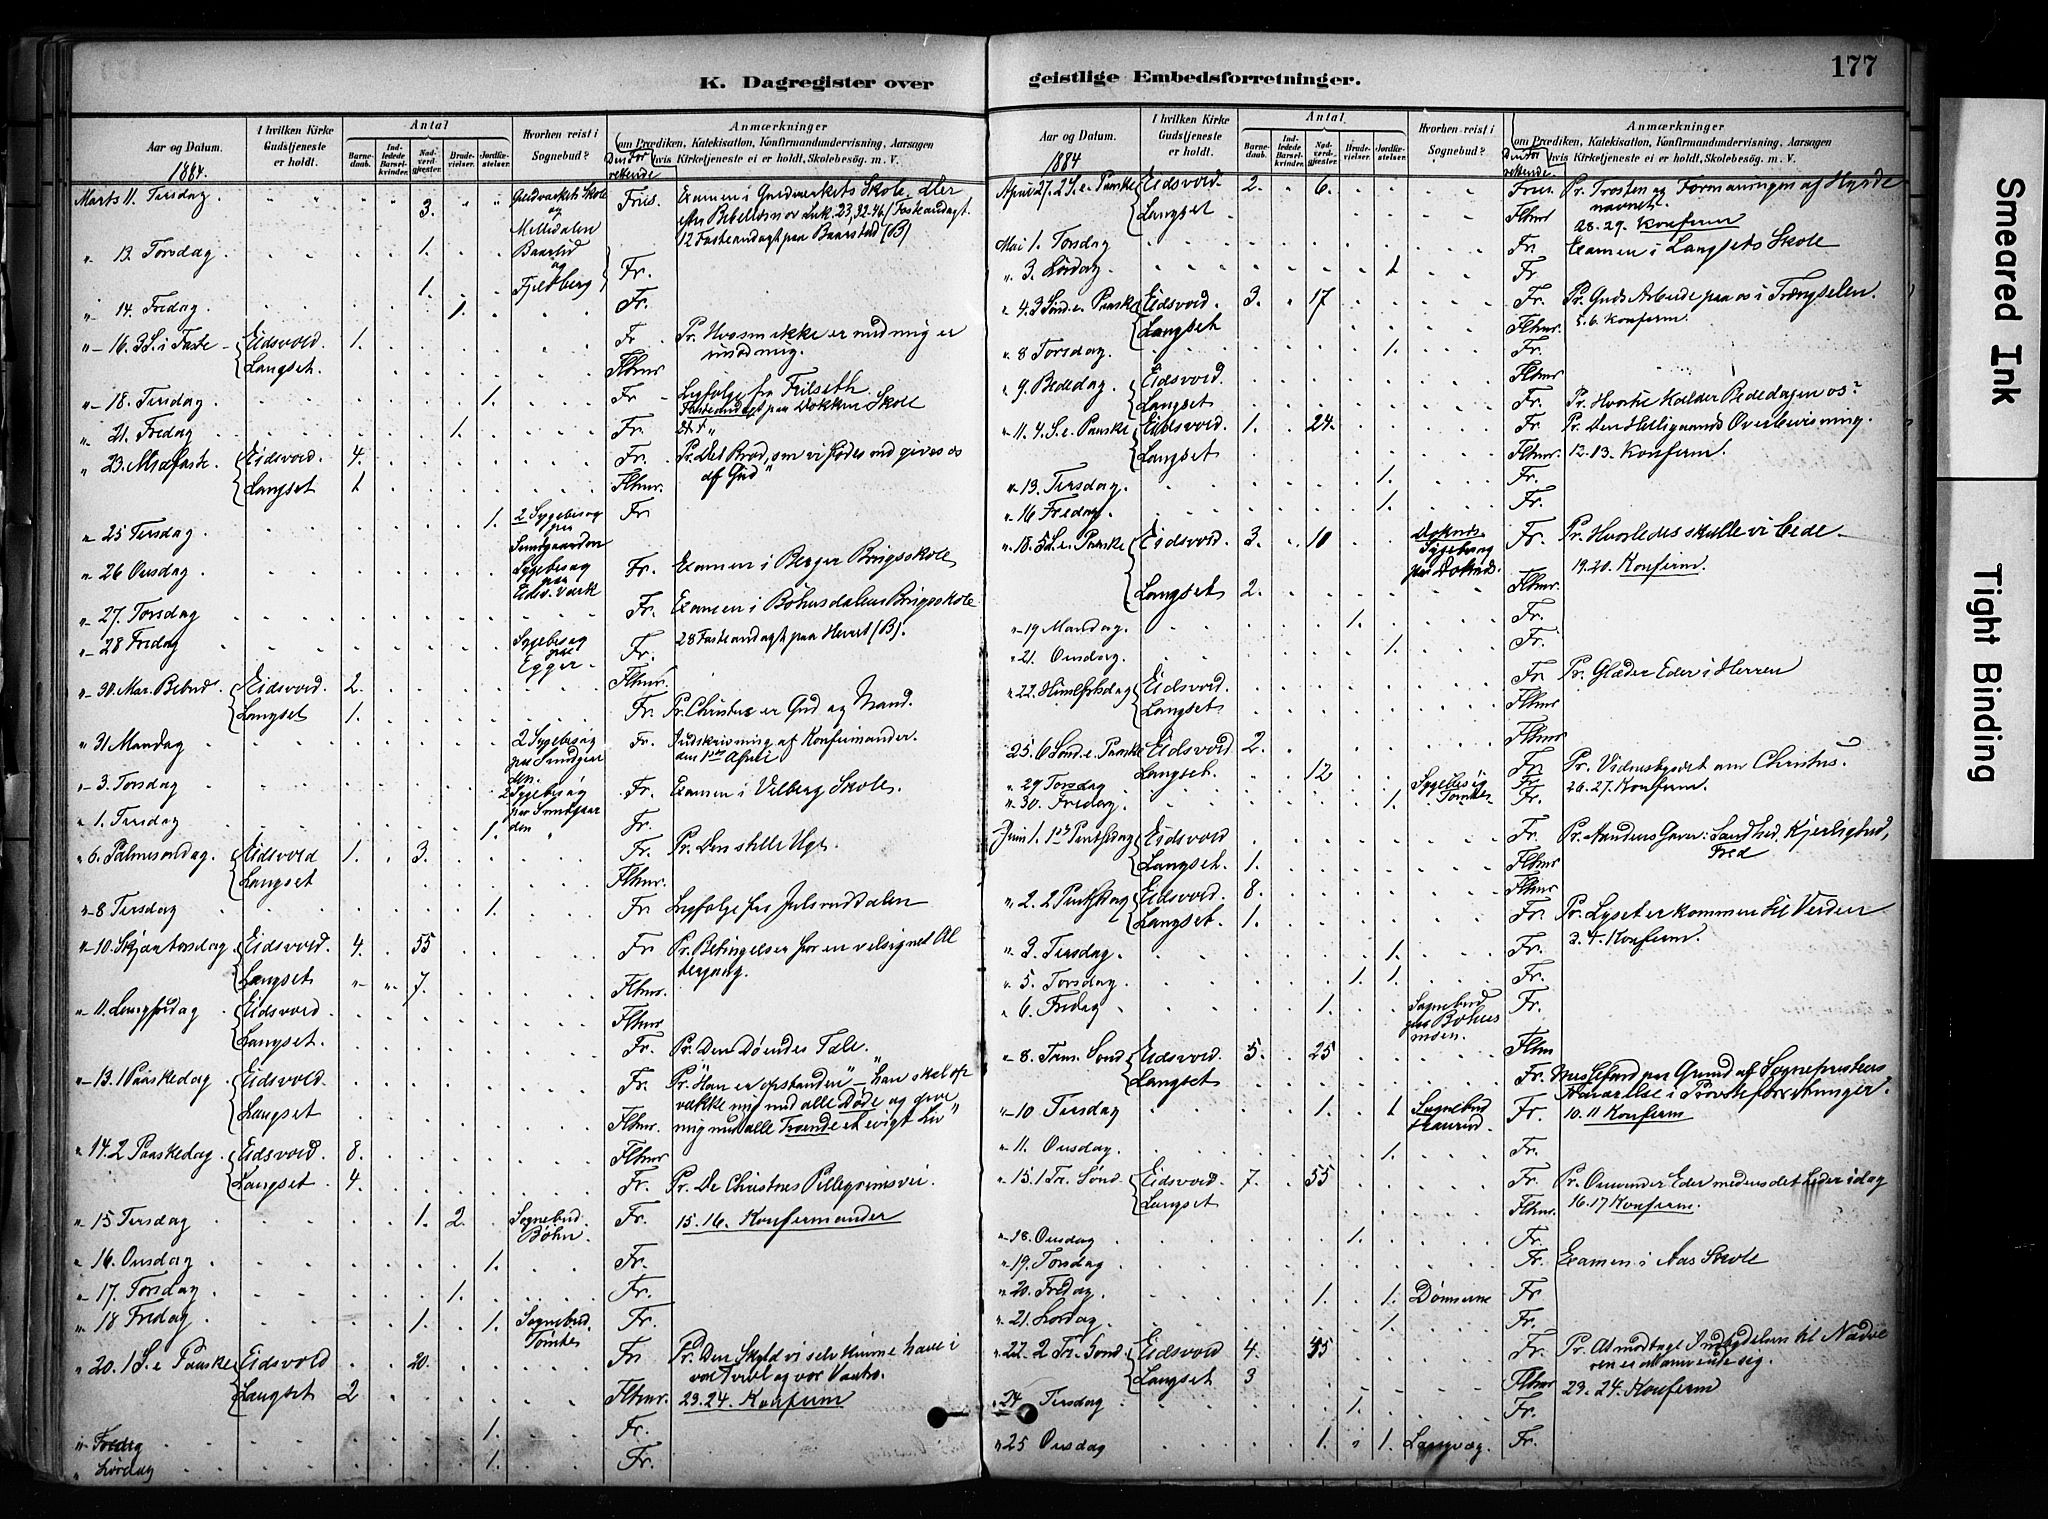 177
K. Dagregister over
geistlige Embedsforretninger.
Aar og Datum.
I hvilken Kirke Gudstjeneste er holdt.
Antal
Barnedaab.
Indledede Barselkvinder.
Nadverdgjester.
Brudevielser.
Jordfæstelser.
Hvorhen reist i Sognebud?
Anmærkninger
om Prædiken, Katekisation, Konfirmandundervisning, Aarsagen
hvis Kirketjeneste ei er holdt, Skolebesøg. m. V.
1884.
Marts 11. Tirsdag 3. Guldværkets Skole og Fries. Examen i Guldverkets Skole, der
" 13. Torsdag 1. Baarlid og Fr.
1. Fjeldberg
12 Fasteandagt paa Baarstad (B)
" 14. Fredag 1. Fr.
" 16. 3 S. i Faste Eidsvold. 1. Fr. Pr. Hvo som ikke er med mig er
Langset. Flhmr imod mig.
" 18. Tirsdag 1. Fr Ligfølge fra Frilseth
Fasteandagt paa Dokken Skole
" 21. Fredag 1. Fr.
" 23. Midfaste Eidsvold. 4. Fr. Pr. Det Brød, som vi gives os
Langset 1 Flhmr. af Gud"
" 25 Tirsdag 1. 2 Sygebesøg paa Fr
" 26 Onsdag Sygebesøg paa Eidsv. Værk Fr. Examen i Berger Brugsskole
" 27. Torsdag Fr. Examen i Bøhnsdalens Brugsskole
" 28 Fredag Sygebesøg paa Egger. Fr. 28 Fasteandagt paa (B).
" 30. Mar. Bebud. Eidsvold. 2. Flhmr.
Langset 1. Fr. Pr. Christus er Gud og Mand.
" 31 Mandag 2 Sygebesøg Fr. Indskrivning af Konfirmander.
den 1ste April
" 3. Torsdag 2 Sygebesøg Fr. Examen i Vilberg Skole.
" 1. Tirsdag 1. " Fr.
" 6. Palmesøndag. Eidsvold 1. 3. Fr. Pr. Den stille Uge.
Langset Flhmr.
" 8 Tirsdag 1. Fr Ligfølge fra Julsruddalen
" 10. Skjærtorsdag Eidsvold. 4. 55 Fr. Pr. Betingelser for en velsignet Al
Langset " " 7. Flhmr. tergang.
" 11. Langfredag Eidsvold Flhmr
Langset. Fr. Pr. Den Døendes Tale.
" 13. 1 Paaskedag Eidsvold Fr. Pr. "Han er opstanden" – han skal op
Langset Flhmr. vække mig med alle Døde og give
mig med alle Troende et evigt Liv"
" 14. 2 Paaskedag Eidsvold 8. Flhmr
Langset 4. Fr. Pr. De Christnes Pillegrimsvei.
" 15 Tirsdag 1. 2. Sognebud. Bøhn Fr. 15. 16. Konfirmander
" 16. Onsdag 1. Fr.
" 17. Torsdag 1. Fr.
" 18 Fredag 1. 1. Sognebud. Tømte Fr.
" 20. 1 S. e. Paaske Eidsvold 20. Fr. Pr. Den Skyld vi selv kunne have i
vor Tvivl og vor Vantro.
Langset 2 Flhmr. 23. 24. Konferm
" Fredag 1. Fr.
" Lørdag 1. Fr.
Aar og Datum.
I hvilken Kirke Gudstjeneste er holdt.
Antal
Barnedaab.
Indledede Barselkvinder.
Nadverdgjester.
Brudevielser.
Jordfæstelser.
Hvorhen reist i Sognebud?
Anmærkninger
om Prædiken, Katekisation, Konfirmandundervisning, Aarsagen
hvis Kirketjeneste ei er holdt, Skolebesøg. m. V.
1884
April 27. 2 S. e. Paaske Eidsvold. 2. 6. Fries. Pr. Trøsten og Formaningen af Hyrde
navnet.
Langset. Flhmr 28. 29. Konferm
Mai 1. Torsdag Fr. Examen i Langsets Skole
" 3. Lørdag 1 Fr.
" 4. 3 Sønd. e. Paaske Eidsvold. 3. 17 Fr. Pr. Guds Arbeide paa os i Trængselen.
Langset Flhmr. 5. 6. Konferm.
" 8 Torsdag. 1. Fr.
" 9. Bededag. Eidsvold. Flhmr
Langset Fr. Pr. Hvortil kalder Bededagen os?
" 11. 4. S. e. Paaske Eidsvold. 1. 24. Fr. Pr. Den Helligaands Overbevisning.
Langset Flhmr. 12. 13. Konferm.
" 13. Tirsdag. 1. Fr.
" 16 Fredag 1. Fr.
" 18. 5 S. e. Paaske Eidsvold. 3. 10 Fr. Pr. Hvorledes skulle vi bede
Langset 2. Flhmr. 19. 20. Konferm.
" 19 Mandag. 1. Fr.
" 21. Onsdag. 1. Fr.
" 22. Himelfrtsdag Eidsvold. Fr Pr. Glæder Eder i Herren
Langset. Flhmr
25. 6 Sønd. e. Paaske Eidsvold 2. Flhmr
Langset. 12 Fr. Pr. Vidnesbyrdet om Christus.
" 29 Torsdag Sygebesøg Tømte Fr 26. 27. Konferm.
" 30. Fredag. 1. Fr.
Juni 1. 1ste Pintsedag Eidsvold Fr. Pr. Aandens Gaver: Sandhed, Kjerlighed,
Fred
Langset 1. Flhmr
" 2. 2 Pintsedag Eidsvold 8. Flhmr
Langset. 1. Fr. Pr. Lyset er kommen til Verden
" 3. Tirsdag. 1. Fr. 3. 4. Konferm.
" 5. Torsdag. 1 1. Fr.
" 6. Fredag 1. Sognebud Fr.
" 8. Trin. Sønd Eidsvold. 5. 25 Flhmr
Langset Fr. Messefard paa Grund af Sognepræstens
Fraværelse i Provsteforretninger.
" 10 Tirsdag 1. 1 Sognebud Fr. 10. 11 Konferm
" 11. Onsdag 1. Fr.
" 15. 1 Tr. Sønd. Eidsvold 7. 55 Fr. Pr. Omvender Eder medens det heder idag
Langset Flhmr 16. 17 Konferm.
" 18. Onsdag 1. Fr.
" 19. Torsdag Fr. Examen i Aas Skole
" 20. Fredag. 1. 1. Dønnerne Fr.
" 21. Lørdag. 1. Fr.
" 22. 2 Tr. Sønd. Eidsvold 4. 35 Fr. Pr. At modtage Indbydelsen til Nadve
ren er at omvende sig.
Langset 3 Flhmr 23. 24. Konferm
" 24 Tirsdag 1. Fr.
" 25 Onsdag 1. " 1. Langvæg. Fr.
Smeared Ink
Tight Binding